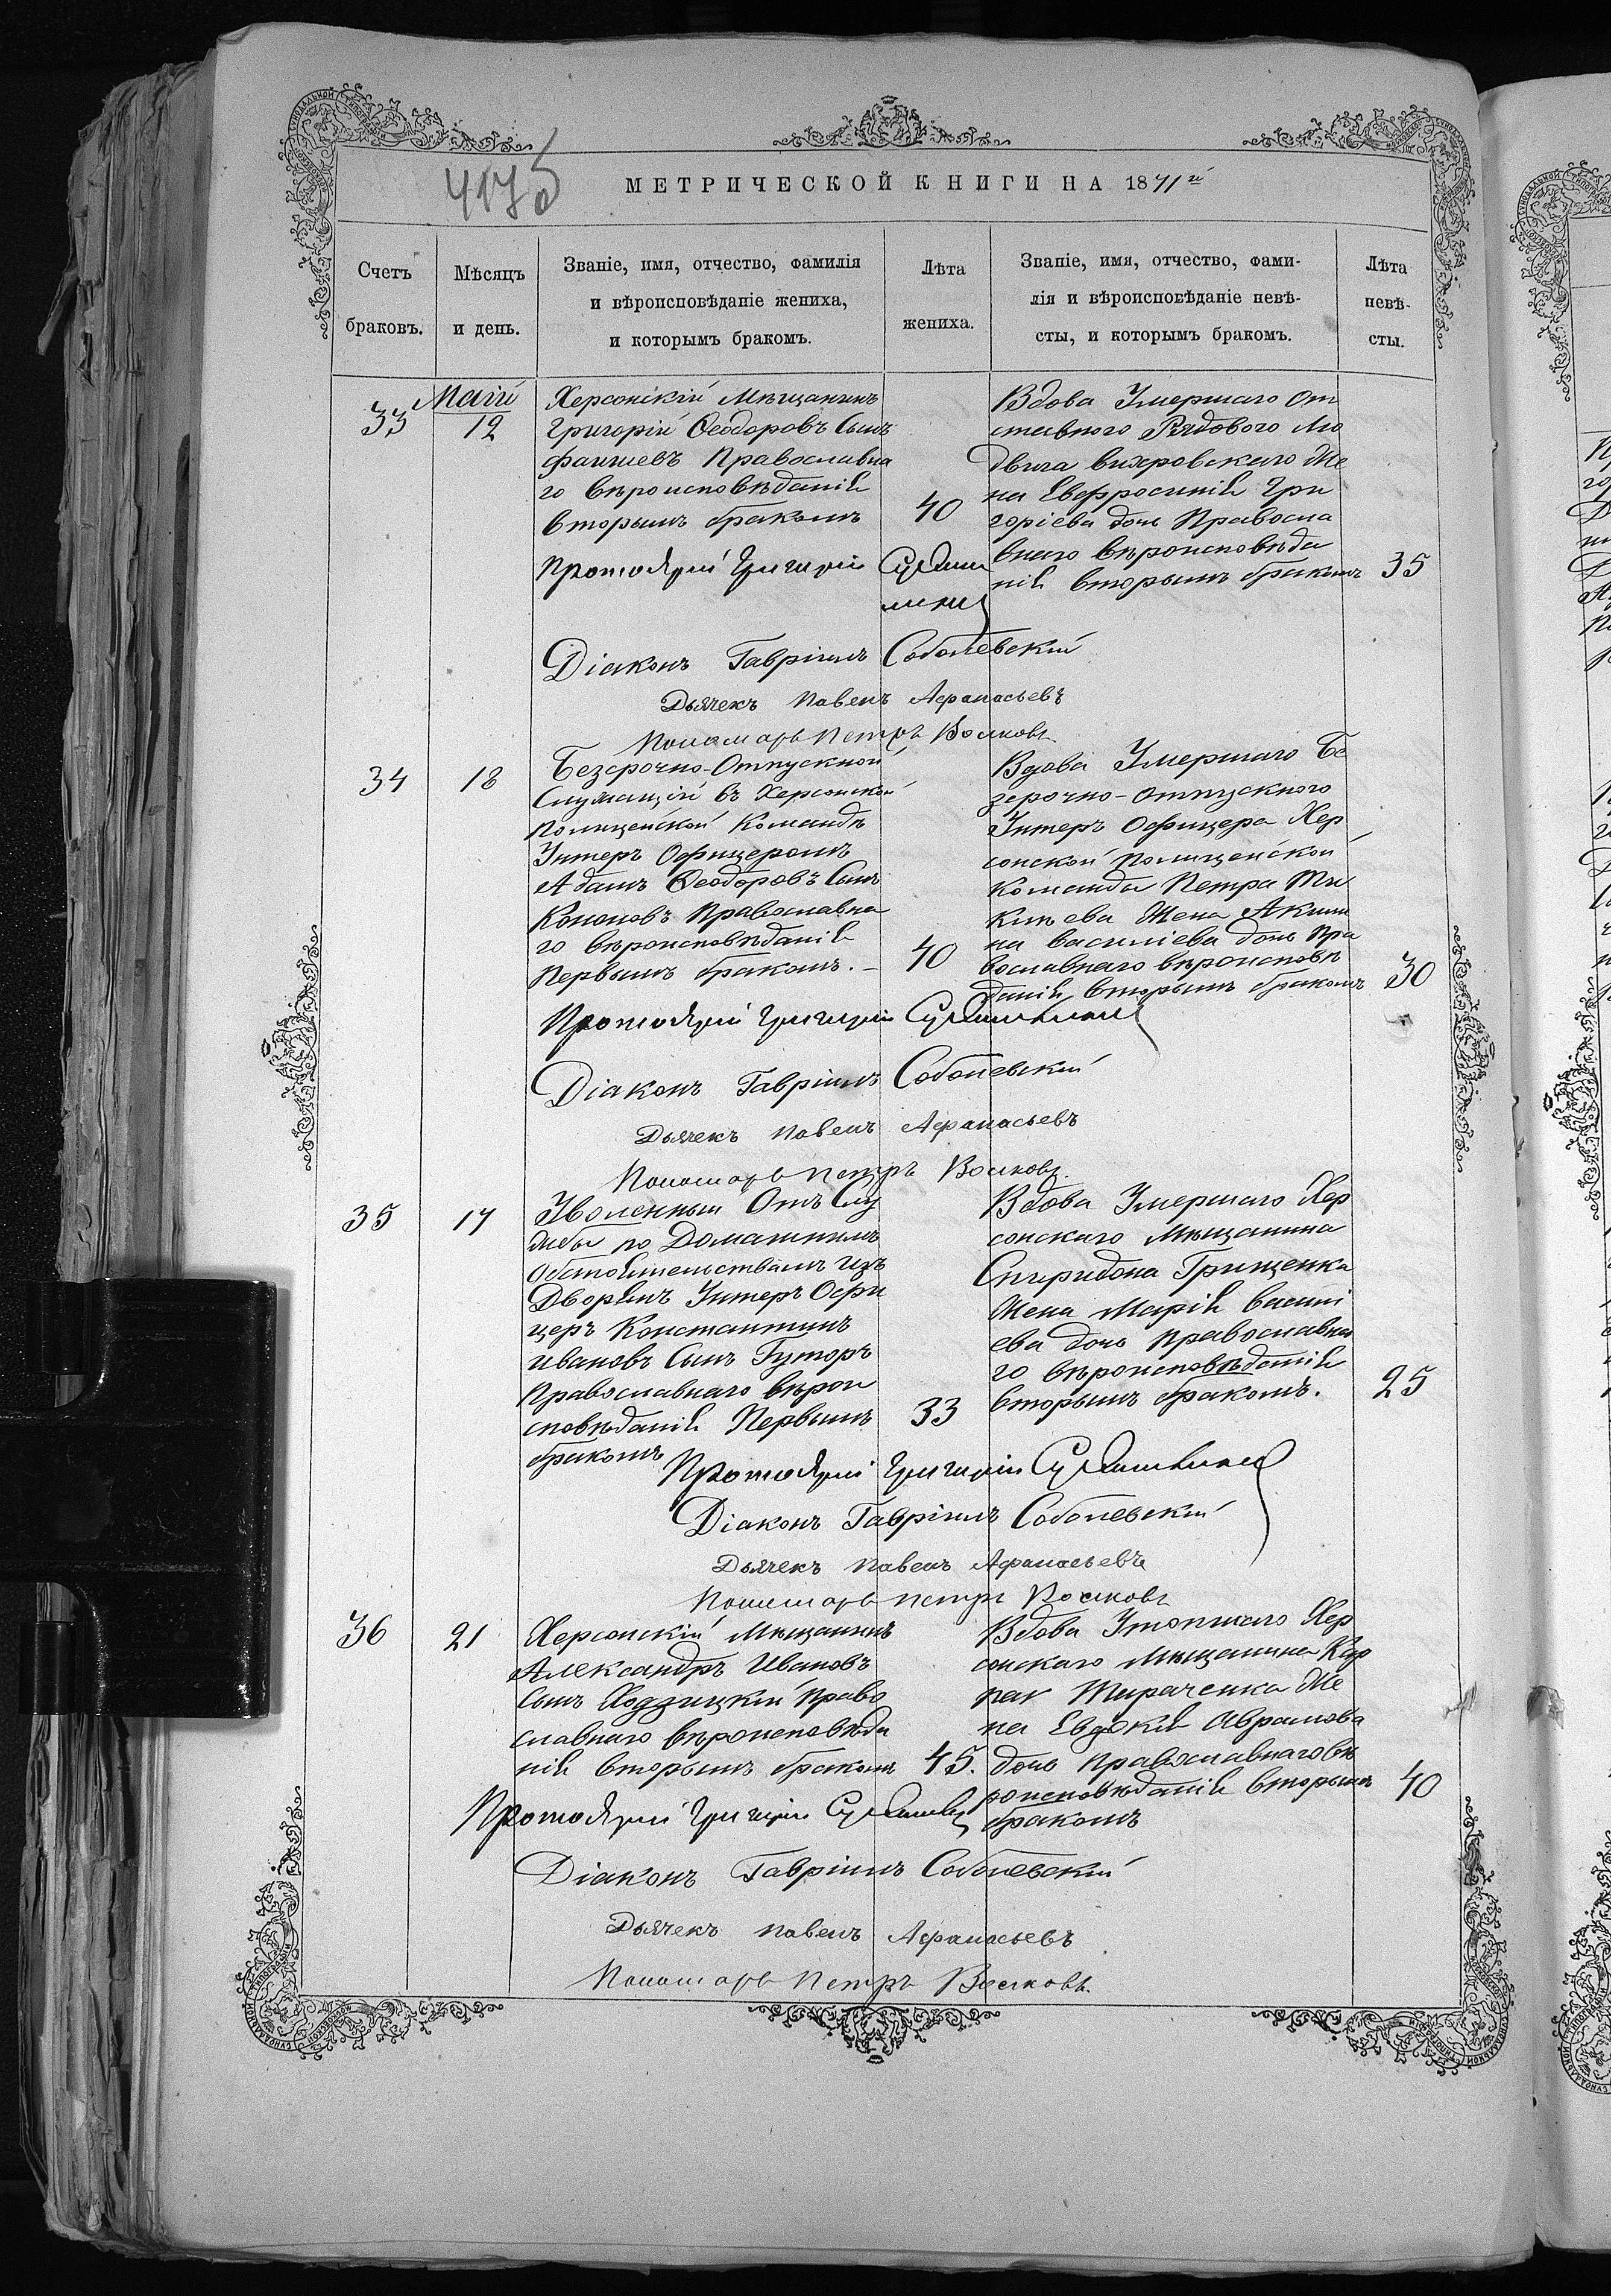 4175
МЕТРИЧЕСКОЙ КНИГИ НА 1871й
Счетъ
браковъ.
Мѣсяцъ
и день.
Званіе, имя, отчество, фамилія
и вѣроисповѣданіе жениха,
и которымъ бракомъ.
Лѣта
жениха.
Званіе, имя, отчество, фами-
лія и вѣроисповѣданіе невѣ-
сты, и которымъ бракомъ.
Лѣта
невѣ-
сты.
33
Маій
12
Херсонскій Мѣщанинъ
Григорій Ѳеодоровъ Сынъ
Православна
го вѣроисповѣданія
вторымъ бракомъ
40
Вдова Умершаго От
ставного Рядового Лю
двига вихровскаго Же
на Евфросинія Гри
горіева дочь Правосла
внаго вѣроисповѣда
нія вторымъ бракомъ
35
Протоіерей Григорій
Діаконъ Гавріилъ Соболевскій
Дьячекъ Павелъ Афанасьевъ
Пономарь Петръ Волковъ
34
18
Безсрочно-Отпускной
Служащій въ Херсонской
Полицейской Командѣ
Унтеръ Офицеромъ
Адамъ Ѳеодоровъ Сынъ
Кононовъ Православна
го вѣроисповѣданія
Первымъ бракомъ.-
40
Вдова Умершаго Бе
зсрочно-отпускного
Унтеръ Офицера Хер
сонской полицейской
команды Петра Ми
кѣева Жена Акили
на василіева дочь Пра
вославнаго вѣроисповѣ
данія вторымъ бракомъ
30
Протоіерей Григорій
Діаконъ Гавріилъ Соболевскій
Дьячекъ Павелъ Афанасьевъ
Пономарь Петръ Волковъ
35
17
Уволенный Отъ Слу
жбы по Домашнимъ
Обстоятельствамъ изъ
Дворянъ Унтеръ Офи
церъ Константинъ
ивановъ Сынъ Гуторъ
Православнаго вѣрои
сповѣданія Первымъ
бракомъ
33
Вдова Умершаго Хер
сонскаго Мѣщанина
Спиридона Грищенка
Жена Марія васили
ева дочь православна
го вѣроисповѣданія
вторымъ бракомъ.
25
Протоіерей Григорій
Діаконъ Гавріилъ Соболевскій
Дьячекъ Павелъ Афанасьевъ
Пономарь Петръ Волковъ
36
21
Херсонскій Мѣщанинъ
Александръ Ивановъ
Сынъ Ходзицкій Право
славнаго вѣроисповѣда
нія вторымъ бракомъ
45.
Вдова Утопшаго Хер
сонскаго Мѣщанина Кар
пах Тираченка Же
на Евдокія Аврамова
дочь православнаго вѣ
роисповѣданія вторымъ
бракомъ
40
Протоіерей Григорій
Діаконъ Гавріилъ Соболевскій
Дьячекъ Павелъ Афанасьевъ
Пономарь Петръ Волковъ.